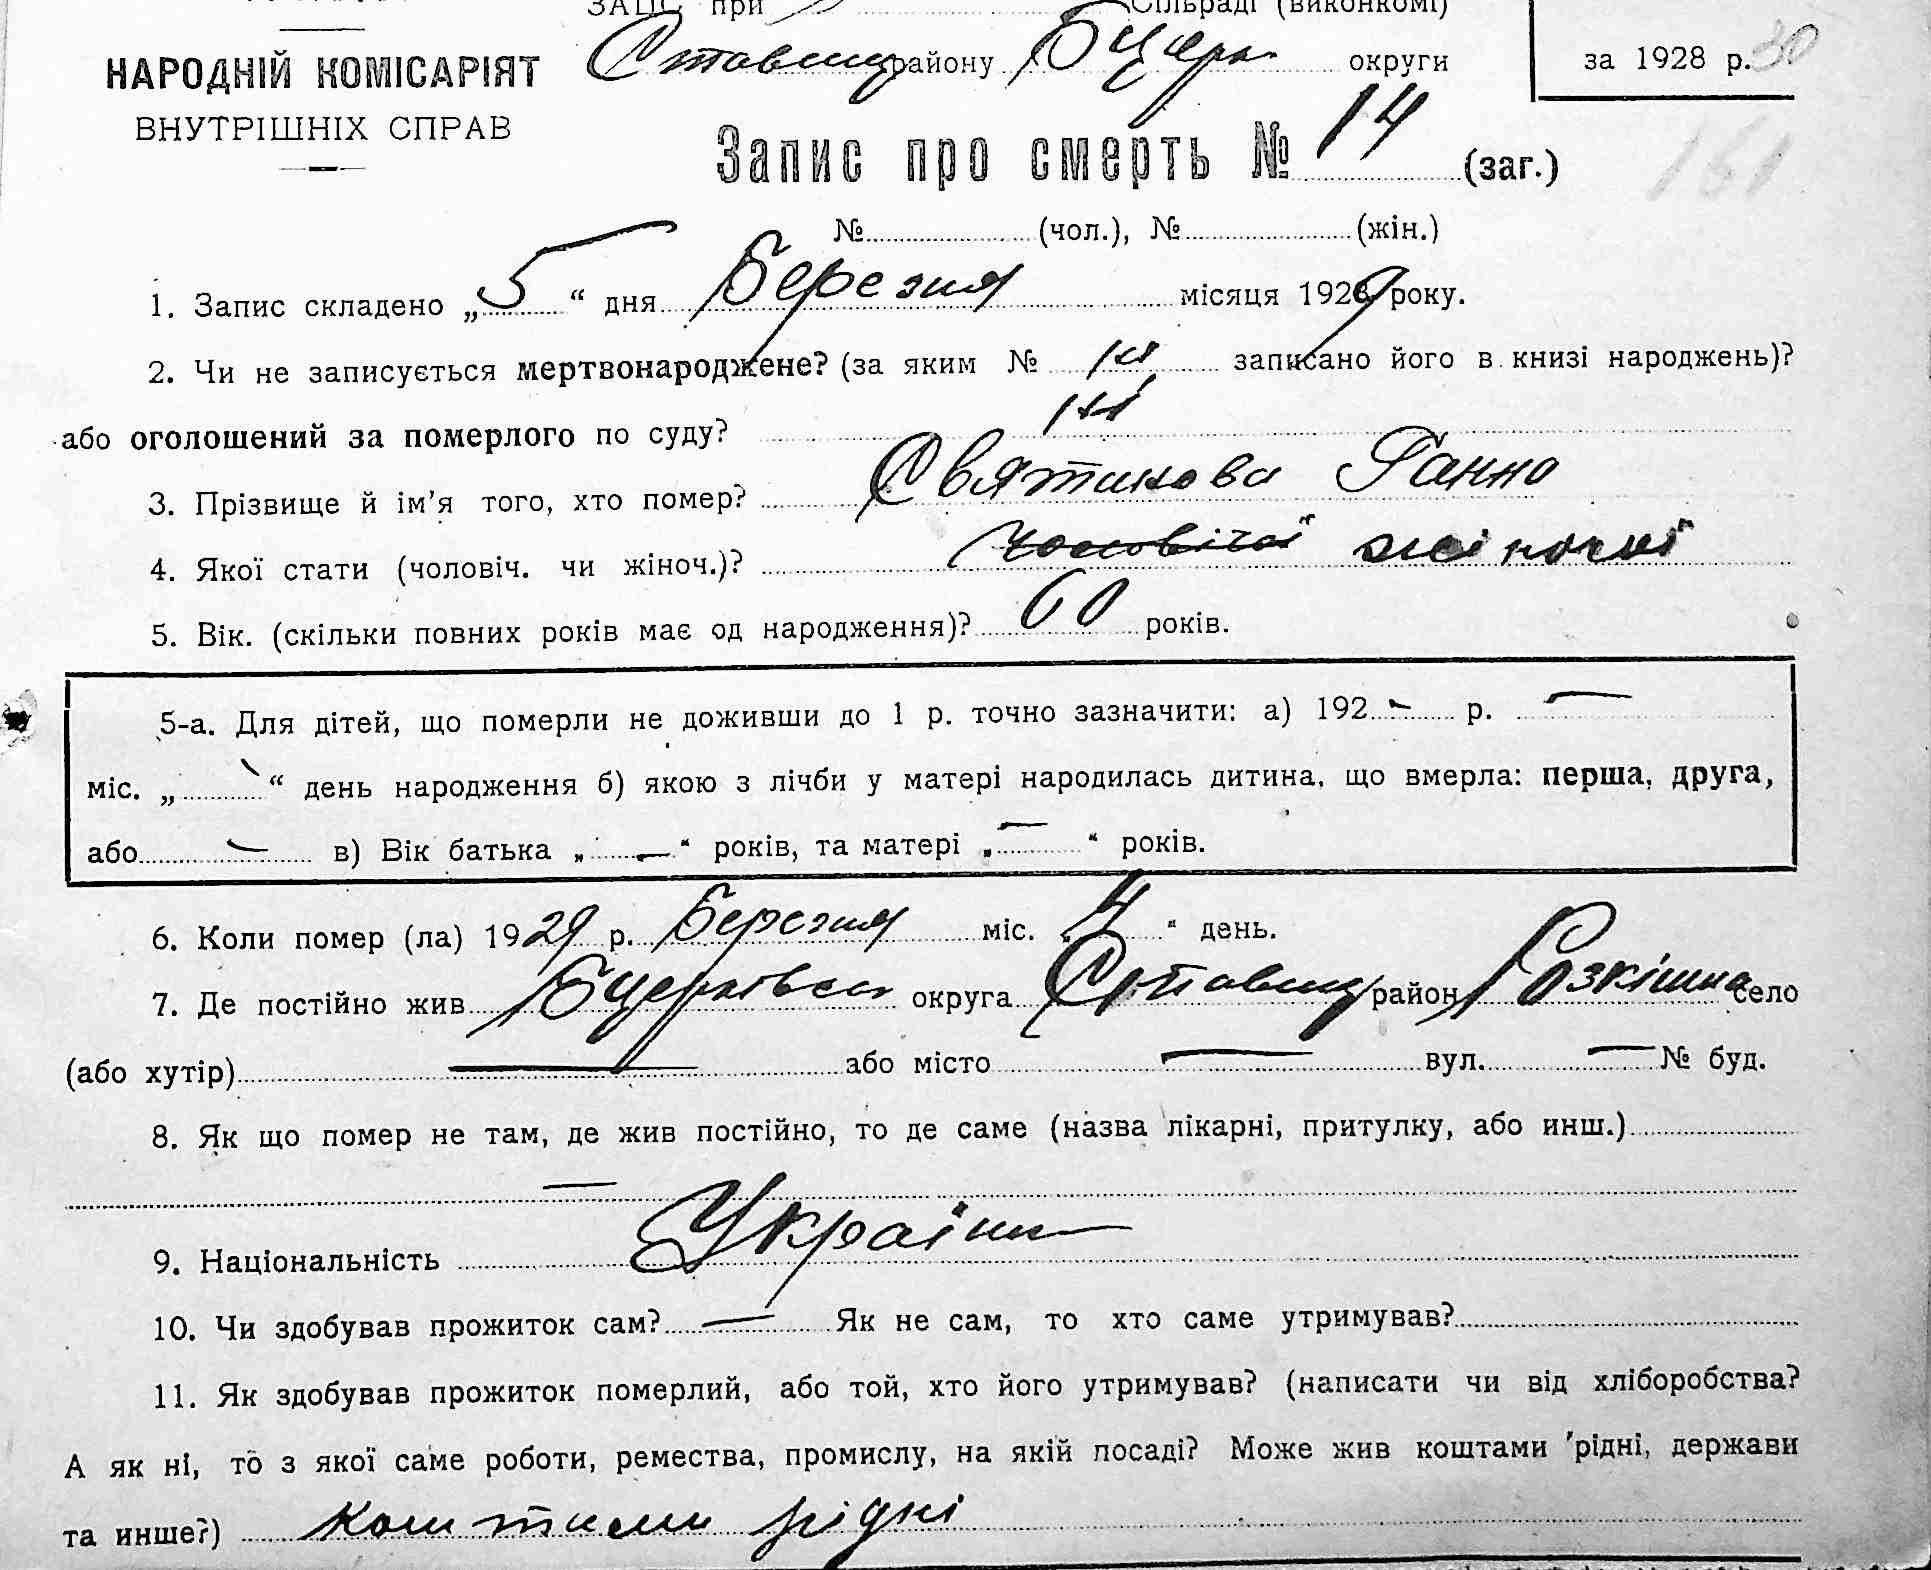 ЗАПС при Сільраді (виконкомі)
НАРОДНІЙ КОМІСАРІЯТ
ВНУТРІШНІХ СПРАВ
Ставищ району Бцерк округи
за 1928 р. 30
Запис про смерть № 14 (заг.)
161
№ (чол.), № (жін.)
1. Запис складено „5“ дня Березня місяця 1929 року.
2. Чи не записується мертвонароджене? (за яким № ні записано його в книзі народжень)?
або оголошений за померлого по суду? ні
3. Прізвище й ім’я того, хто помер? Святинова Ганна
4. Якої стати (чоловіч. чи жіноч.)? чоловічої жіночої
5. Вік. (скільки повних років має од народження)? 60 років.
5-а. Для дітей, що померли не доживши до 1 р. точно зазначити: а) 192 - р. —
міс. „ “ день народження б) якою з лічби у матері народилась дитина, що вмерла: перша, друга,
або — в) Вік батька „—“ років, та матері „—“ років.
6. Коли помер (ла) 1929 р. Березня міс. „4“ день.
7. Де постійно жив Бцерківськ округа Ставищ район Розкішна село
(або хутір) — або місто — вул. — № буд.
8. Як що помер не там, де жив постійно, то де саме (назва лікарні, притулку, або инш.)
—
9. Національність Україн
10. Чи здобував прожиток сам? — Як не сам, то хто саме утримував?
11. Як здобував прожиток померлий, або той, хто його утримував? (написати чи від хліборобства?
А як ні, то з якої саме роботи, ремества, промислу, на якій посаді? Може жив коштами рідні, держави
та инше?) коштами рідні